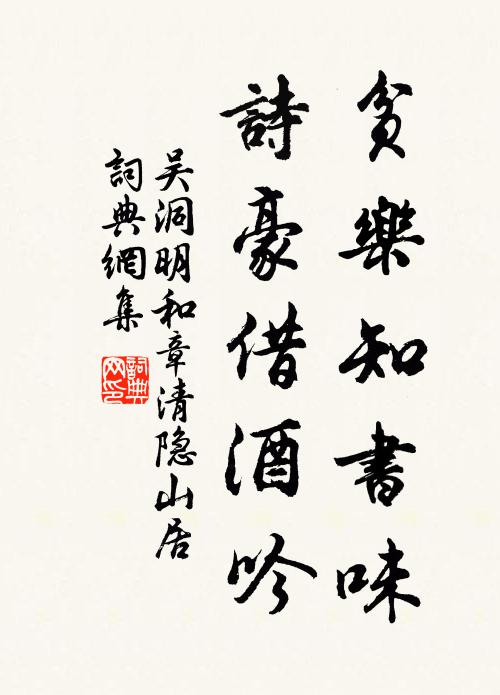 貧樂知書味
詩豪借酒吟
吴洞明和章清隐山居
詞典網集
詞典
网印